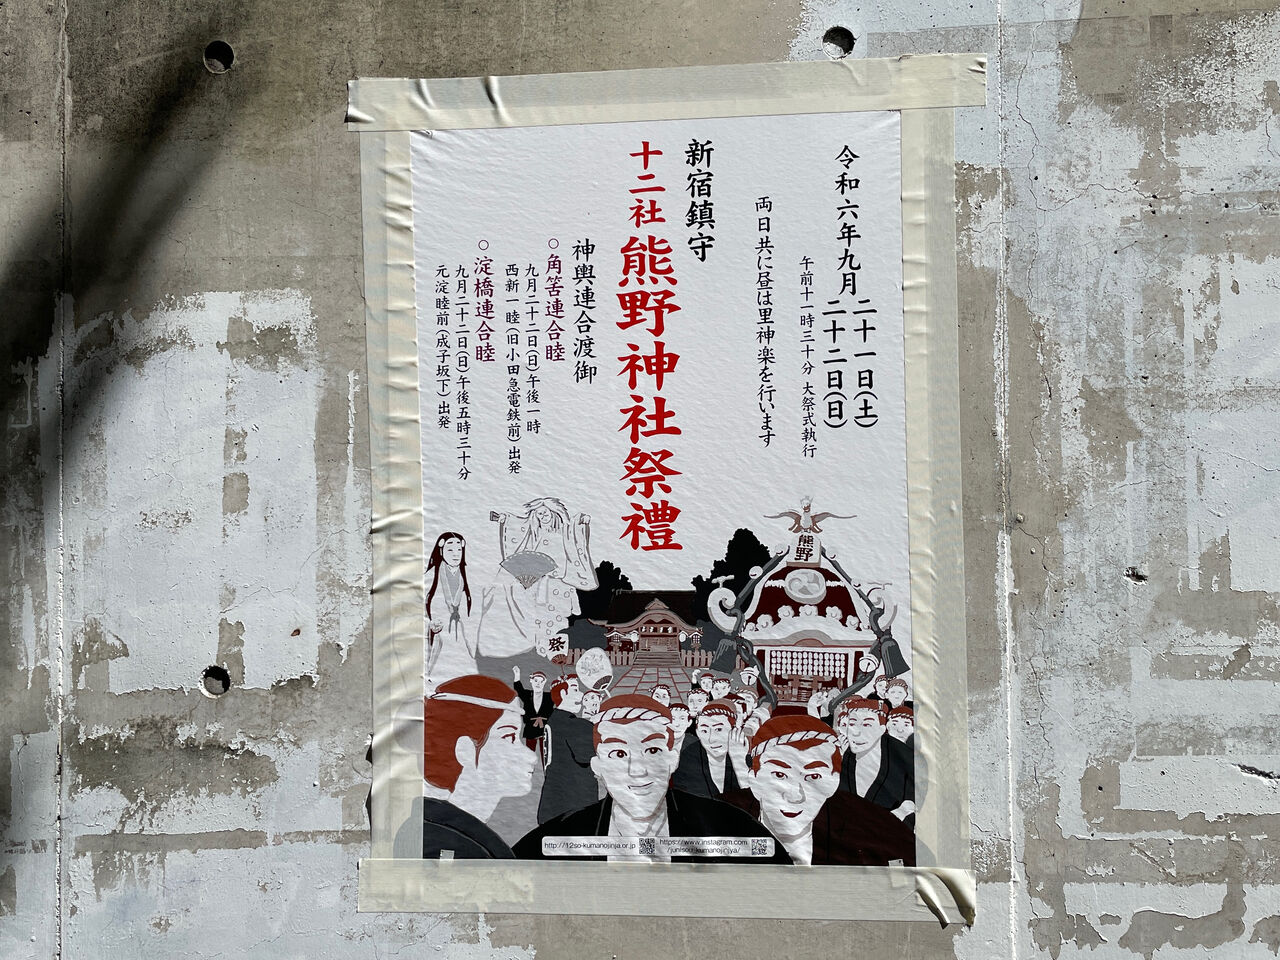 令和六年九月
二十一日(土)
二十二日(日)
午前十一時三十分 大祭式執行
両日共に昼は里神楽を行います
新宿鎮守
十二社 熊野神社祭禮
神輿連合渡御
○角筈連合睦
九月二十二日(日)午後一時
西新一睦(旧小田急電鉄前)出発
○淀橋連合睦
九月二十二日(日)午後五時三十分
元淀睦前(成子坂下)出発
熊野
祭
http://12so-kumanojinja.or.jp
https://www.instagram.com
/junisou-kumanojinjya/